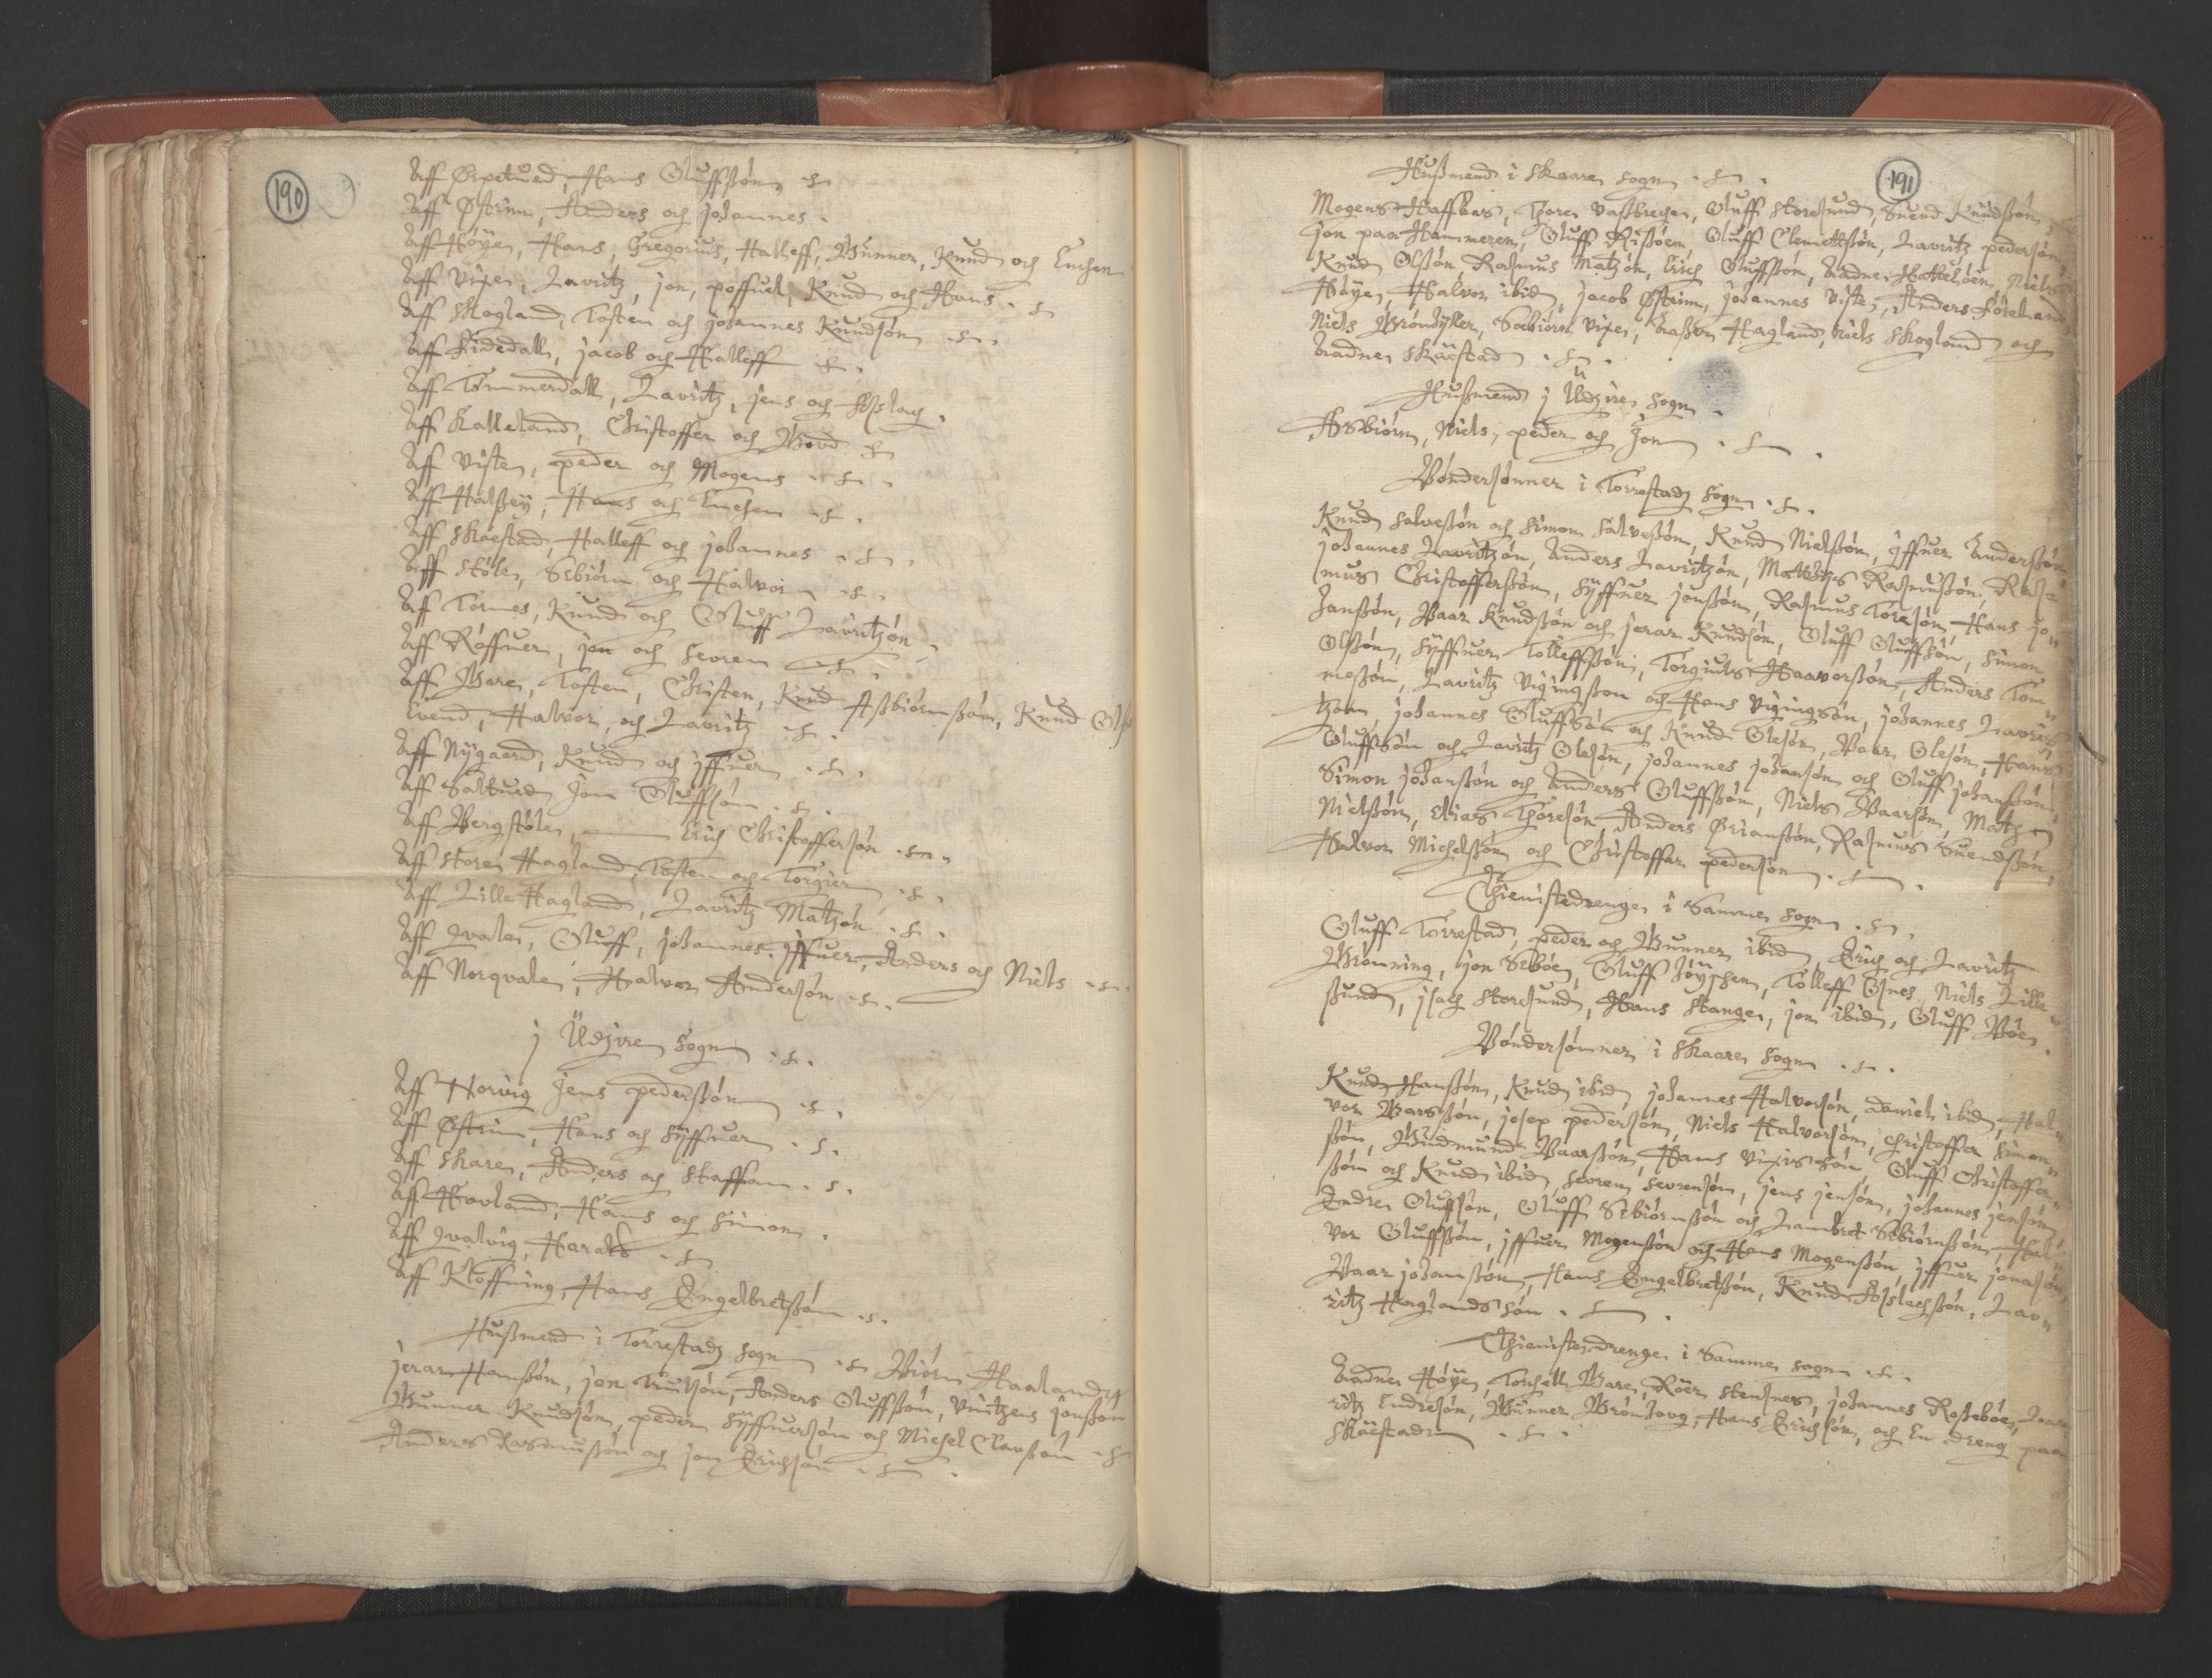 190
Aff Ørpetued, Hans Oluffssøn
Aff Østrim, Anders och johannes.
Aff Høye, Hans, Gregorius, Halleff, Gunner, Knud och Euchen
Aff Vixe, Lavritz, jon, poffuel, Knud och Hans.
Aff Skogland, Tosten och johannes Knudsøn
Aff Fidedall, jacob och Halleff
Aff Tømmerdall, Lavritz, jens och Asslach.
Aff Kalleland, Christoffer och Gord
Aff Viste, peder och Mogens
Aff Halssey, Hans och Euchen
Aff Skaestad, Halleff och johannes
Aff Støle, Sebiørn och Halvor
Aff Tornes, Knud och Oluff Lavritzøn
Aff Røffuer, jon och Sevren
Aff Gare, Tosten, Christen, Knud Assbiørnssøn, Knud
Evend, Halvor, och Lavritz
Aff Nygaard, Knud och jffuer
Aff Saltued Jon Oluffsøn
Aff Bergstøle, Erich Christoffersøn
Aff store Hagland, Tosten och Torgier
Aff Lille Hagland, Lavritz Matzøn
Aff Qvale, Oluff, johannes, jffuer, Anders och Niels
Aff Norqvale, Halvor Andersøn
j Udzire Sogn
Aff Norvig Jens pederssøn
Aff Østrim, Hans och Syffuer
Aff Skare, Anders og Staffan
Aff Hovland, Hans och Simon
Aff Qvalvig, Harald
Aff Kløffning, Hans Engelbretssøn
Hussmend i Torrestadz Sogn Biørn Haaland
jerar Hanssøn, jon Truelsøn, Anders Oluffssøn, Vintzens jonssøn
Gunner Knudsøn, peder Syffuersøn och Michel Clavssøn
Anders Rasmussøn och jon Erichsøn
191
Hussmend i Skaare sogn
Mogens Haffbas, Thore Vassbreche, Oluff Storesund, Suend Knudssøn,
Jon paa Hammeren, Oluff Rissøen, Oluff Clemettssøn, Lavritz pedersøn,
Knud Olssøn, Rasmus Matzøn, Erich Oluffssøn, Aadne Hattelöen, Niels
Høye, Halvor ibid, jacob Østrim, johannes Viste, Anders Føreland
Niels Grøndyller, Sæbiørn Vixe, Hagland, Niels Skogland och
Aadne Skaestad
Hussmend j Udzire Sogn
Asbiørn, Niels, peder och Jon
Bøndersønner i Torrestadz Sogn
Knud Salvessøn och Simon Salvessøn, Knud Nielssøn, jffuer Anderssøn
johannes Lavritzøn, Anders Lavritzøn, Matthis Rasmussøn, Ras=
mus Christofferssøn, Syffuer jonssøn, Rasmus Toresøn, Hans jon
Janssøn, Baar Knudssøn och jerar Knudsøn, Oluff Oluffsøn, Simon
Olssøn, Syffuer Tolleffssøn, Torgiuls Haavorssøn, Anders Tom=
messøn, Lavritz Vigingsson och Hans Vigingsøn, johannes Lavri=
tzøn, johannes Oluffsøn och Knud Olesøn, Baar Olesøn, Hans
Oluffsøn och Lavritz Olesøn, johannes johansøn och Oluff johanssøn,
Simon johanssøn och Anders Oluffssøn, Niels Baarsøn, Matz
Nielssøn, Elias Thoresøn Anders Ørianssøn, Rasmus Suendssøn,
Halvor Michelssøn och Christoffer pedersøn
Thienistedrenge i Samme sogn
Oluff Torrestad, peder och Gunner ibid, Erich och Lavritz
Grønning, jon Sebøe, Oluff, Tolleff Osnes, Niels Lille=
sund, jsach Storesund, Hans Stange, jon ibid, Oluff Bøe
Bøndersønner i Skaare Sogn
Knud Hanssøn, Knud ibid, johannes Halvorsøn, daniel ibid, Hal=
vor Barssøn, josep pedersøn, Niels Halvorsøn, Christoffer Simon=
søn, Gudmund Baarssøn, Hans Vixis søn, Oluff Christoffer=
søn och Knud ibid, Sevren Sevrensøn, jens jensøn, johannes jensøn,
Endre Oluffsøn, Oluff Sebiørnssøn och Lambret Sebiørnssøn, Hal=
vor Oluffssøn, jffuer Mogenssøn och Hans Mogenssøn, jffuer jonasøn,
Baar johanssøn, Hans Engelbretssøn, Knud Asslachssøn, Lav=
ritz Haglands søn
Thieniste drenge i Samme sogn
Aadne Høye, Torchell Gare, Roer Stensnes, johannes Rossebøe, Lav
ritz Endresøn, Gunner Grønhovg, Hans Erichsøn, och En dreng paa
Skaestad